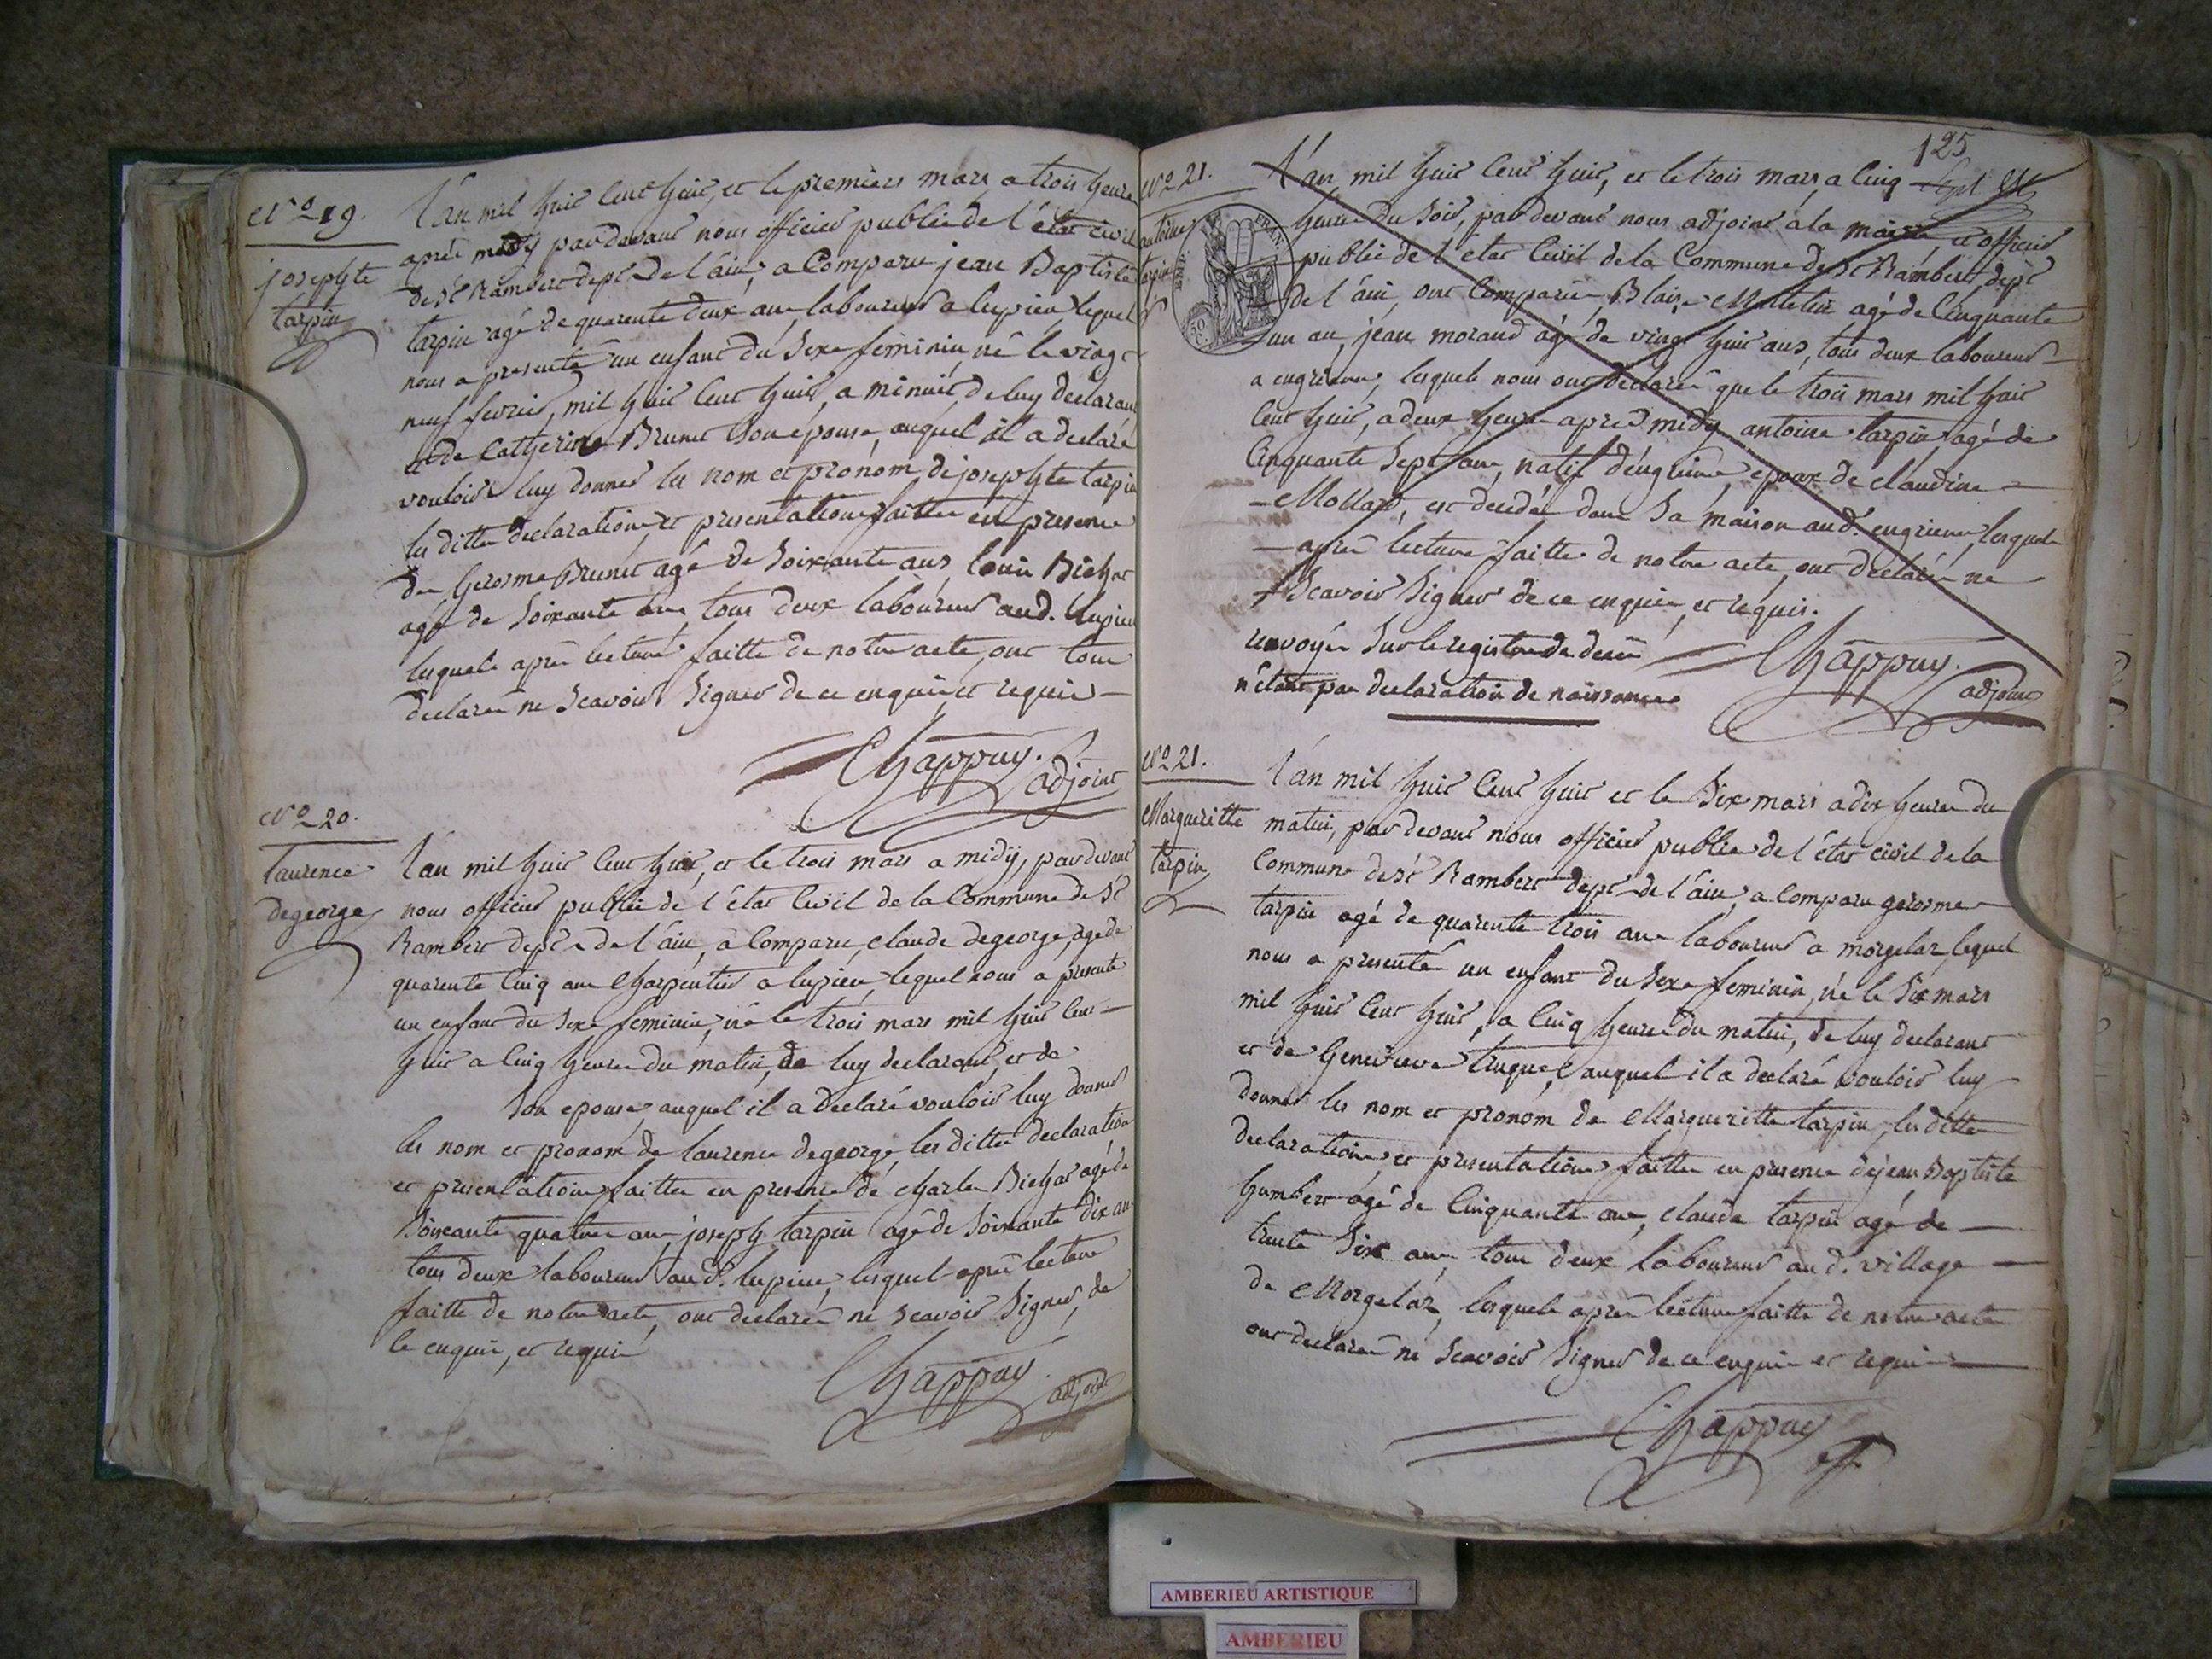 N.º 19.
josephte
tarpin
L'an mil huit Cent huit, et le premiers mars a trois heure
après midy pardevant nous officier public de l'état civil
de St Rambert dept de l'ain, a Comparu jean Baptiste
tarpin agé de quarente deux ans, laboureur a lupieu lequel
nous a presenté un enfant du sexe feminin, né le vingt
neuf fevrier, mil huit Cent huit, a minuit, de luy declarant
et de Catherine Brunet son epouse, auquel il a declaré
vouloir luy donner les nom et prónom de josephte tarpin
les dittes declaration et presentation faitte en presence
de Gerosme Brunet agé de soixante ans, Louis Bichat
agé de soixante ans, tous deux laboureur aud. lupieu
lesquels après lecture faitte de notre acte, ont tous
declaré ne scavoir signer de ce enquis et requis
Chappuy.
adjoint
N.º 20.
Laurence
degeorge
L'an mil huit Cent huit, et le trois mars a midy, pardevant
nous officier public de l'état Civil de la Commune de St
Rambert dept de l'ain, a Comparu, claude degeorge, agé de
quarente Cinq ans Charpentier a lupieu lequel nous a presenté
un enfant du sexe feminin, né le trois mars mil huit Cent
huit a Cinq heures du matin, de luy declarant, et de
son epouse, auquel il a declaré vouloir luy donner
les nom et pronom de laurence degeorge, les dittes declaration
et presentation faitte en presence de charles Bichat agé de
soixante quatre ans, joseph tarpin agé de soixante dix ans
tous deux laboureur aud. lupieu, lesquel après lecture
faitte de notre acte, ont declaré ne scavoir signer, de
ce enquis, et requis
Chappuy
adjoint
125
N.º 21.
antoine
tarpin
L'an mil huit Cent huit, et le trois mars, a Cinq
heure du soir, par devant nous adjoint a la mairie, et officier
public de l'etat Civil de la Commune de St Rambert, dept
de l'ain, ont Comparu, Blaise Mutetin agé de Cinquante
un an, jean morand agé de vingt huit ans, tous deux laboureur
a engrieux, lesquels nous ont declaré que le trois mars mil huit
Cent huit, a deux heure apres midy antoine tarpin agé de
Cinquante sept ans, natif d'engrieux, epoux de claudine
Mollard, est decedé dans sa maison aud. engrieux, lesquels
après lecture faitte de notre acte, ont declaré ne
scavoir signer de ce enquis, et requis.
renvoyé sur le registre de decès
n'étant pas declaration de naissance
Chappuy.
adjoint
N.º 21.
Margueritte
tarpin
L'an mil huit Cent huit et le six mars a dix heures du
matin, par devant nous officier public de l'état civil de la
Commune de St Rambert dept de l'ain, a Comparu gerosme
tarpin agé de quarente trois ans laboureur a morgelaz, lequel
nous a presenté un enfant du sexe feminin, né le six mars
mil huit Cent huit, a Cinq heures du matin, de luy declarant
et de Genevieve truquet, auquel il a declaré vouloir luy
donner les nom et pronom de Margueritte tarpin, les dittes
declaration, et presentation, faitte en presence de jean Baptiste
humbert agé de Cinquante ans, claude tarpin agé de
trente six ans, tous deux laboureur aud. village
de Morgelaz, lesquels après lecture faitte de notre acte
ont declaré ne scavoir signer de ce enquis et requis
Chappuy
AMBERIEU ARTISTIQUE
AMBERIEU